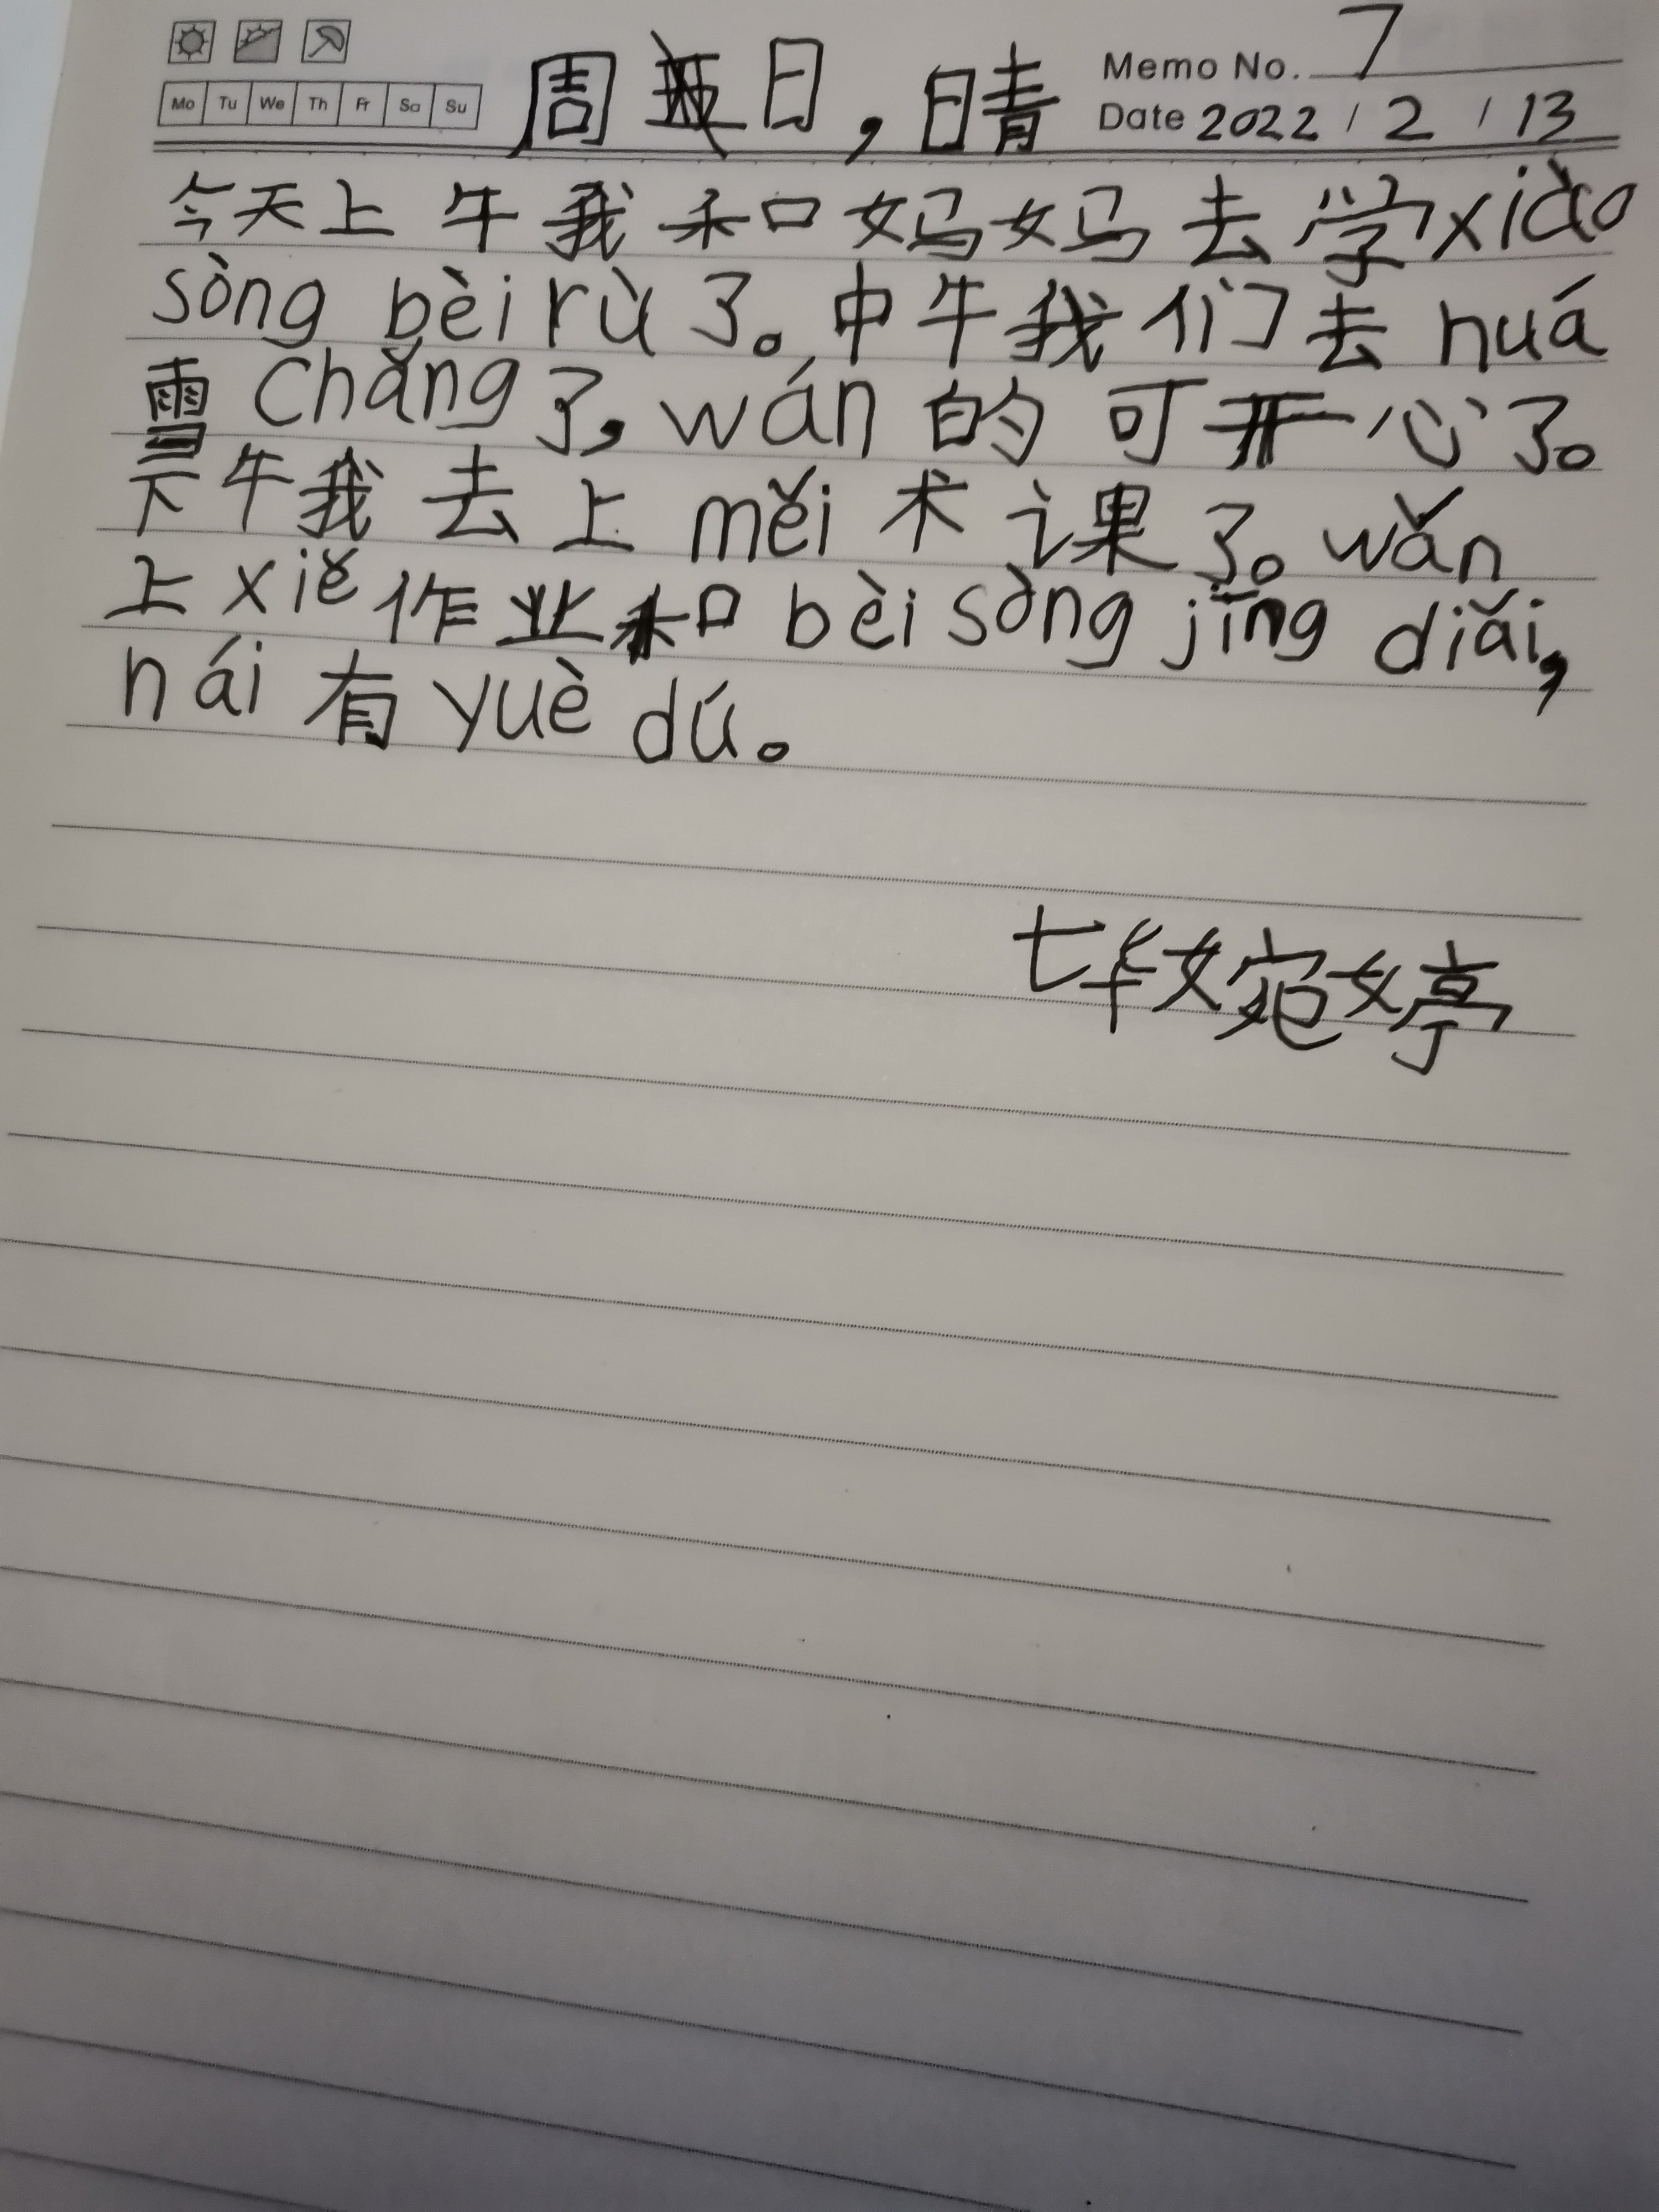 周日，晴 Memo No. 7
Mo Tu We Th Fr Sa Su Date 2022 / 2 / 13
今天上牛我和妈妈去学xiào
sòng bèi rù了。中牛我们去huá
雪chǎng了，wán的可开心了。
下午我去上měi术课了。wǎn
上xiě作业和bèi sòng jīng diǎi,
hái有yuè dú。